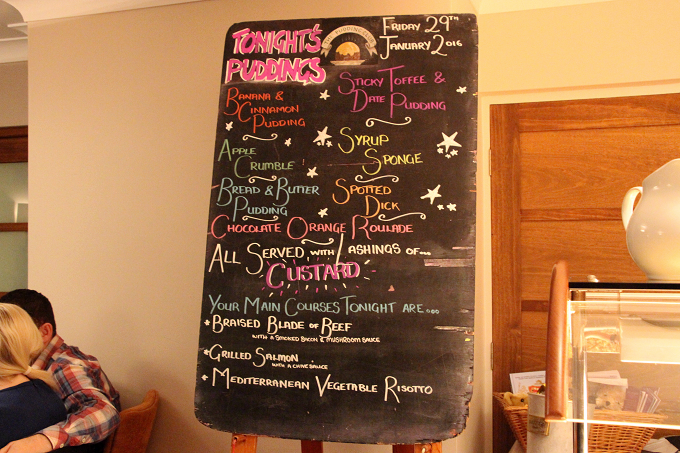 TONIGHT'S
PUDDINGS
PUDDING
FRIDAY 29TH
JANUARY 2016
BANANA &
CINNAMON
PUDDING
STICKY TOFFEE &
DATE PUDDING
APPLE
CRUMBLE
SYRUP
SPONGE
BREAD & BUTTER
PUDDING
SPOTTED
DICK
CHOCOLATE ORANGE ROULADE
ALL SERVED WITH LASHINGS OF...
CUSTARD
YOUR MAIN COURSES TONIGHT ARE...
* BRAISED BLADE OF BEEF
WITH A SMOKED BACON & MUSHROOM SAUCE
* GRILLED SALMON
WITH A CHIVE SAUCE
* MEDITERRANEAN VEGETABLE RISOTTO